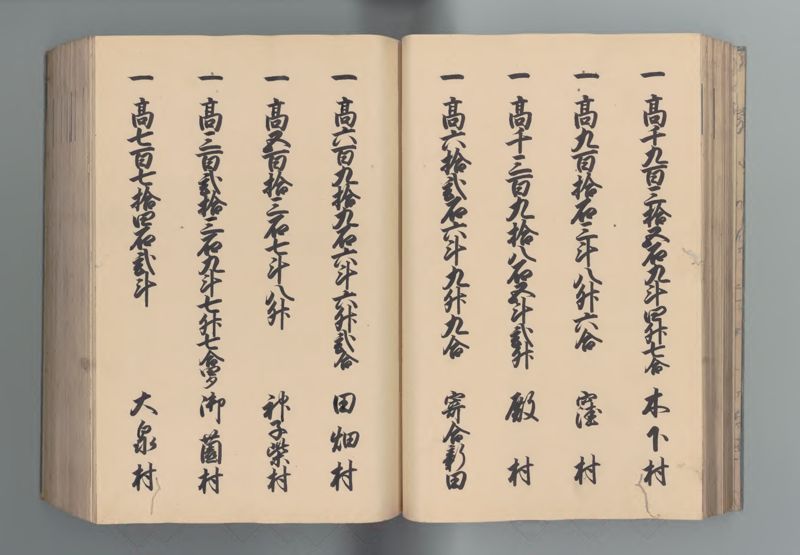 一 高千九百三拾五石九斗四升七合 木下村
一 高九百拾石三斗八升六合 窪村
一 高千三百九拾八石五斗弐升 殿村
一 高六拾弐石六斗九升九合 寄合新田
一 高六百九拾九石六斗六升弐合 田畑村
一 高五百拾三石七斗八升 神子柴村
一 高三百弐拾三石九斗七升七合 御薗村
一 高七百七拾四石弐斗 大泉村